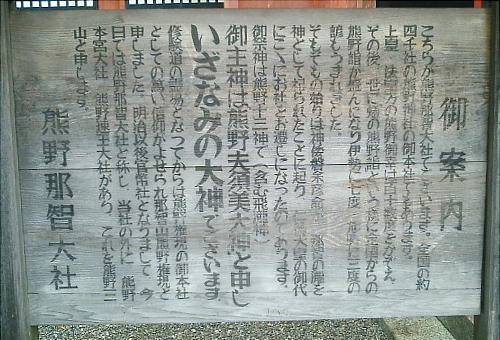 御案内
こちらが熊野那智大社でございます。全国の約
四千社の熊野神社の御本社でもあります。
上皇、法皇方の熊野御幸は百十数度とかぞえ、
その後「蟻の熊野詣」という様に諸国からの
熊野詣が盛んになり伊勢に七度、熊野に三度の
諺もうまれました。
そもそもの始りは神武
神としてまつられたことに起り、仁徳天皇の御代
にここにお社をお遷しになったのであります。
御祭神は熊野十三神で(含む飛瀧神)
御主神は熊野夫須美大神と申し
いざなみの大神でございます
修験道の霊場となってからは熊野権現の御本社
としての高い信仰がよせられ那智山熊野権現と
申しました、明治以後官幣社となりまして、今
日では熊野那智大社と称し、当社の外に、熊野
本宮大社、熊野速玉大社があり、これを熊野三
山と申します。
熊野那智大社